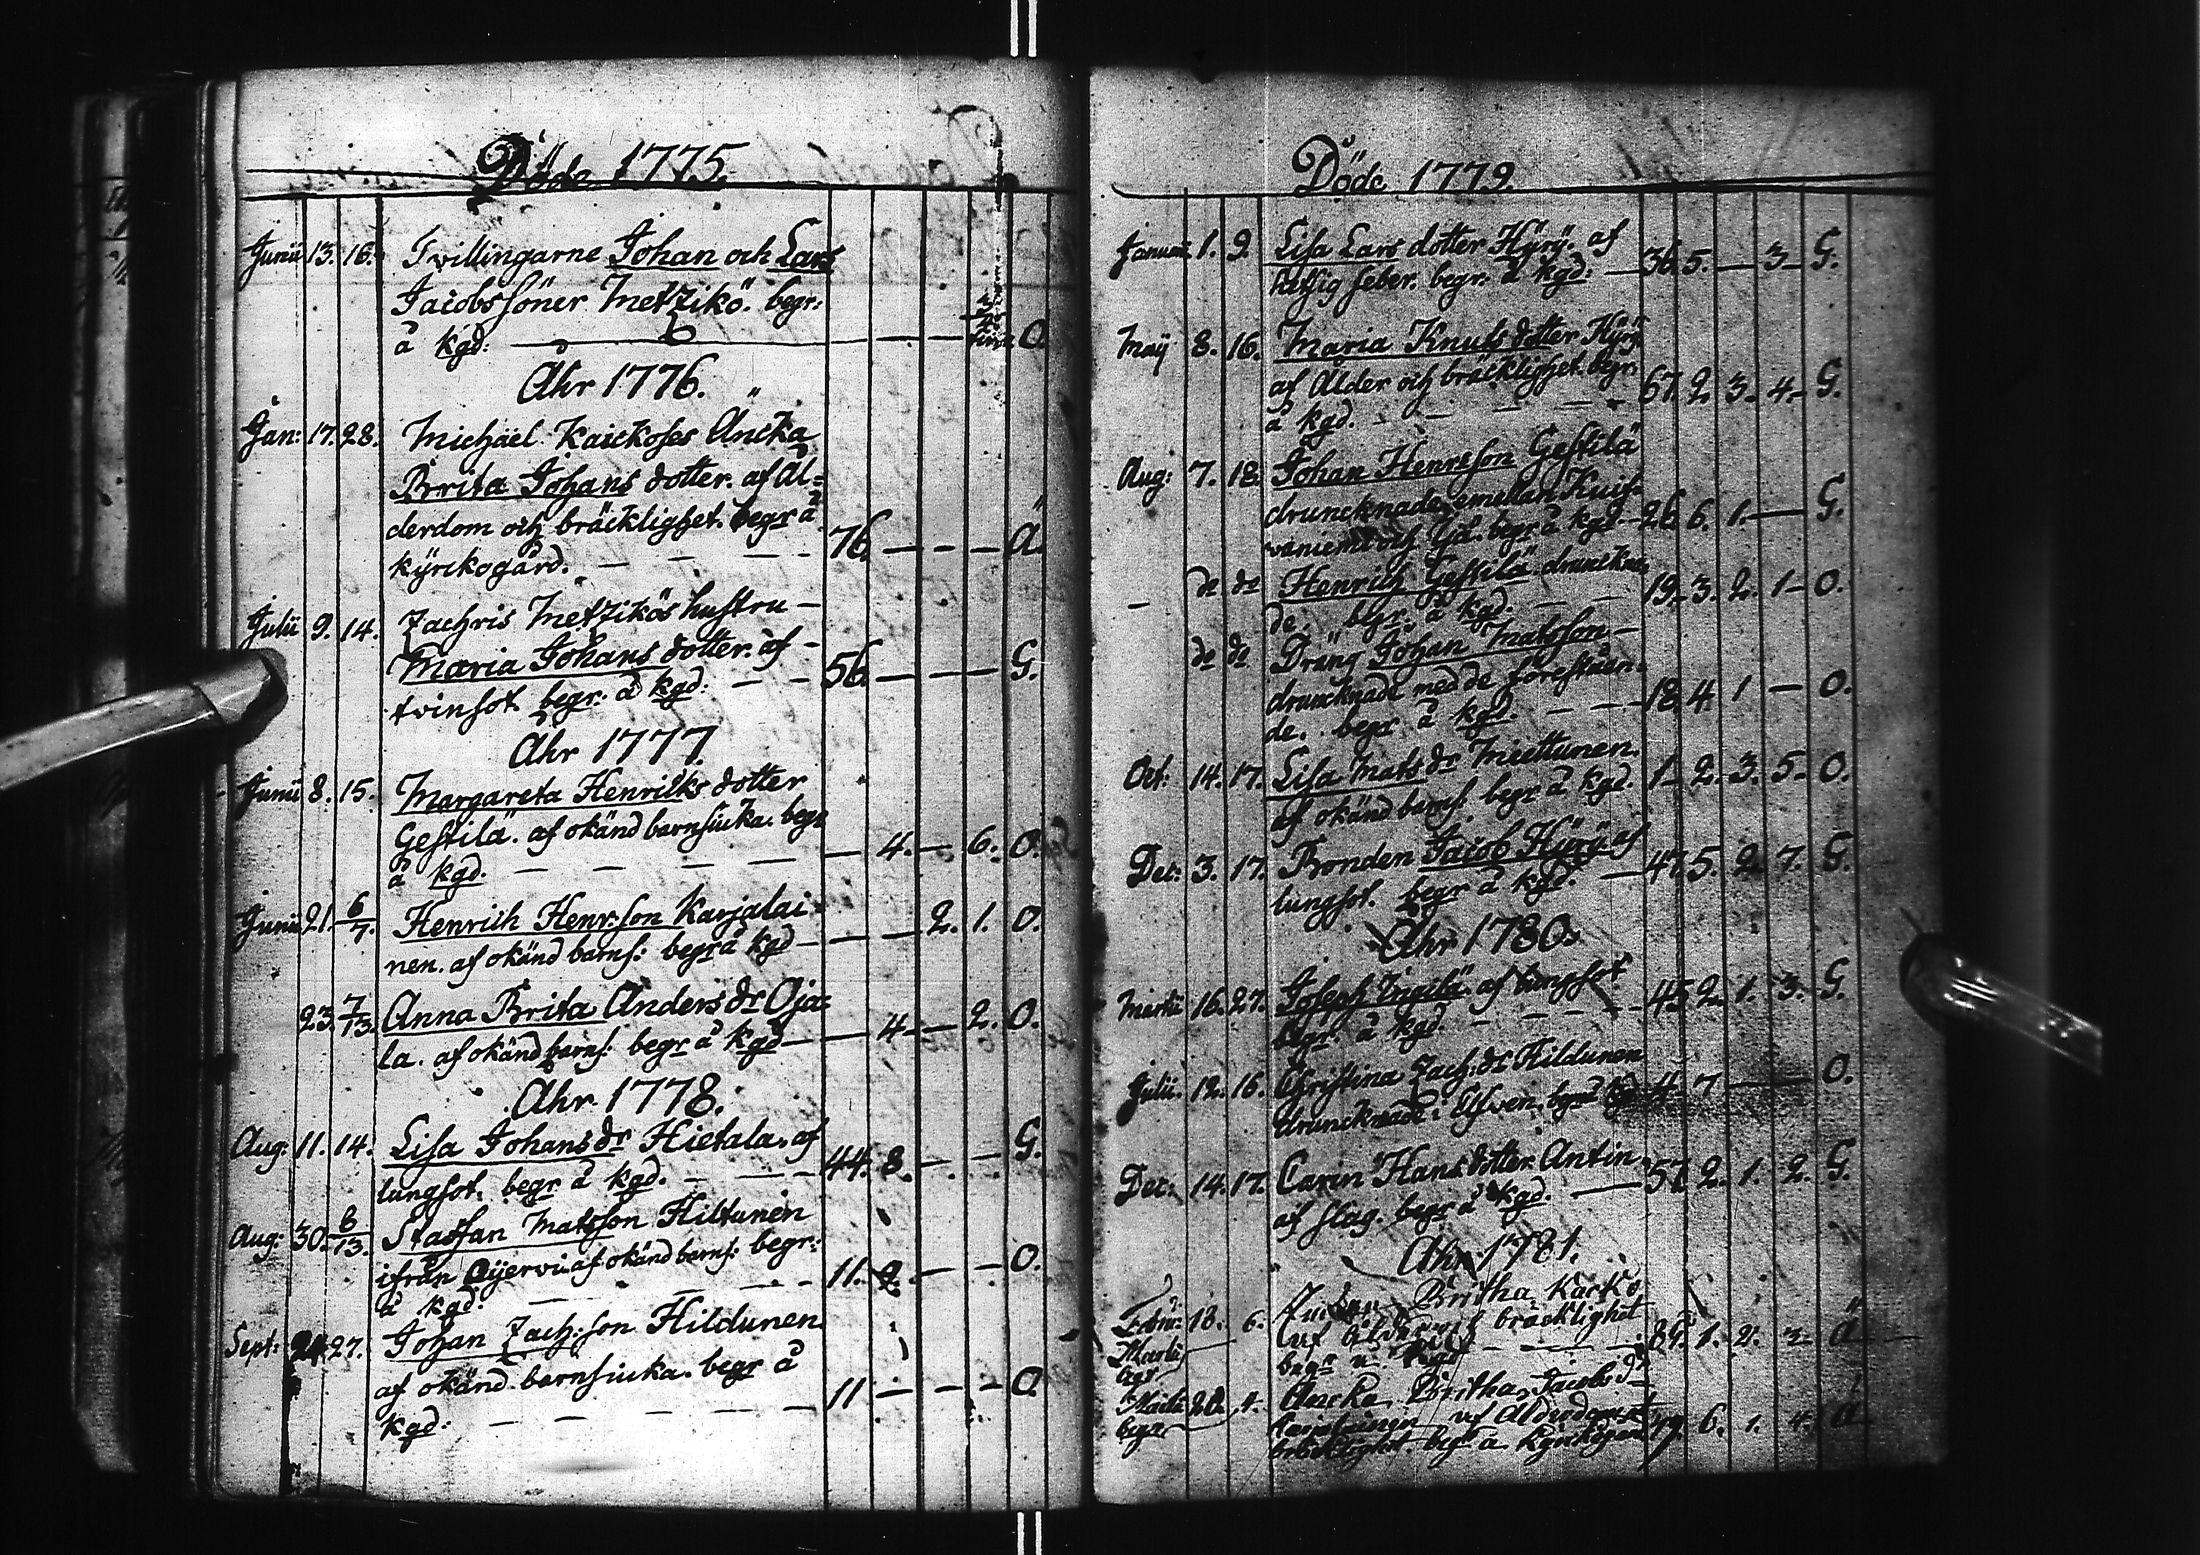 Döde 1775.
Junii 13. 16. Tvillingarne Johan och Lars
Jacobssöner Metzikö. begr:
å kgd: — — — O.
Åhr 1776.
Jan: 17. 28. Michäel Kaickoses Äncka
Brita Johans dotter. af Ål=
derdom och bräcklighet. begr å
kÿrckogård. — — — 76. — — — Ä.
Julii 9. 14. Zachris Metzikös hustru —
Maria Johans dotter. af —
tvinsot. begr. å kgd: — — 56. — — — G.
Åhr 1777.
Junii 8. 15. Margareta Henriks dotter
Gestilä. af okänd barnsiucka. begr
å kgd. — — — — — 4. — 6. O.
Junii 21. 6/7. Henrich Henr:son Karjalai=
nen. af okänd barns: begr å kgd — — — 2. 1. O.
23. 7/13. Anna Brita Anders dr Oja=
la. af okänd barns: begr å kgd — — 4. — 2. O.
Åhr 1778.
Aug: 11. 14. Lisa Johans dr Hietala. af
lungsot. begr å kgd. — — — 44. 8. — — G.
Aug: 30. 6/13. Staffan Matsson Hiltunen
ifrån Oijervi. af okänd barns: begr:
å kgd. — — — — 11. 2. — — O.
Sept: 24. 27. Johan Zach:son Hildunen
af okänd barnsiucka. begr å
kgd: — — — — 11 — — — O.
Döde 1779.
Januarii 1. 9. Lisa Lars dotter Hÿrÿ. af
hetsig feber. begr: å kgd: — 36. 5. — 3. G.
Maÿ 8. 16. Maria Knuts dotter Hÿrÿ
af Ålder och bräcklighet. begr:
å kgd. — — — — 67. 2. 3. 4. G.
Aug: 7. 18. Johan Henrsson Gestilä
druncknade emellan Kuif=
vaniemi och Ijå. begr å kgd — 26. 6. 1. — G.
— de de Henrich Gestilä drunckna
de. begr. å kgd. — — 19. 3. 2. 1. O.
de de Dräng Johan Matsson —
druncknade med de förestäen=
de. begr å kgd. — — — 18. 4. 1 — O.
Oct: 14. 17. Lisa Mats dr Miettunen.
af okänd barns: begr å kgd. 1. 2. 3. 5. O.
Dec: 3. 17. Bonden Jacob Hÿrÿ af
lungsot. begr å kgd. — 47. 5. 2. 7. G.
Åhr 1780.
Martii 16. 27. Joseph af lungsot.
begr: å kgd. — — — — 45 2. 1. 3. G.
Julii. 12. 16. Christina Zach: dr Hildunen
druncknade i Elfven. begr å kgd 4. 7 — — O.
Dec: 14. 17. Carin Hans dotter Antin.
af slag. begr å kgd. — 57. 2. 1. 2. G.
Åhr 1781.
Febru: 18. 6. Britha Karko
Martii af Ålder och bräcklighet
begr begr å kgd — — — 89. 1. 2. 2. Ä
Martii 20. 4. Ancka Britha Jacobs dr
begr af Ålderdom och
bräcklighet begr å kÿrckogård 79. 6. 1. 4. Ä